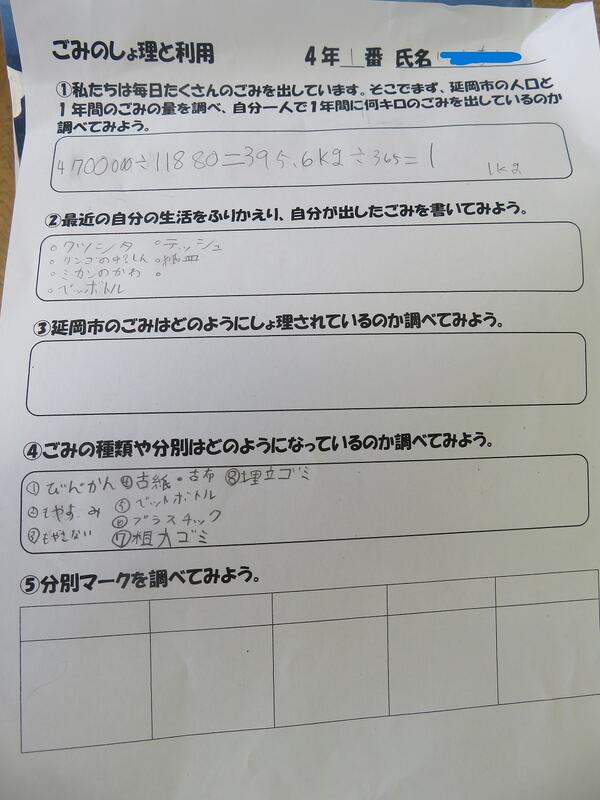 ごみのしょ理と利用
4年 1番 氏名
①私たちは毎日たくさんのごみを出しています。そこでまず、延岡市の人口と
1年間のごみの量を調べ、自分一人で1年間に何キロのごみを出しているのか
調べてみよう。
4700000÷11880=395.6kg÷365=1 1kg
②最近の自分の生活をふりかえり、自分が出したごみを書いてみよう。
○クツシタ ○テッシュ
○リンゴの ○紙皿
○ミカンのかわ ○
○ペッボトル
③延岡市のごみはどのようにしょ理されているのか調べてみよう。
④ごみの種類や分別はどのようになっているのか調べてみよう。
①びんかん ④古紙・古布 ⑧埋立ゴミ
②もやす み ⑤ペットボトル
③もやさない ⑥プラスチック
⑦粗大ゴミ
⑤分別マークを調べてみよう。